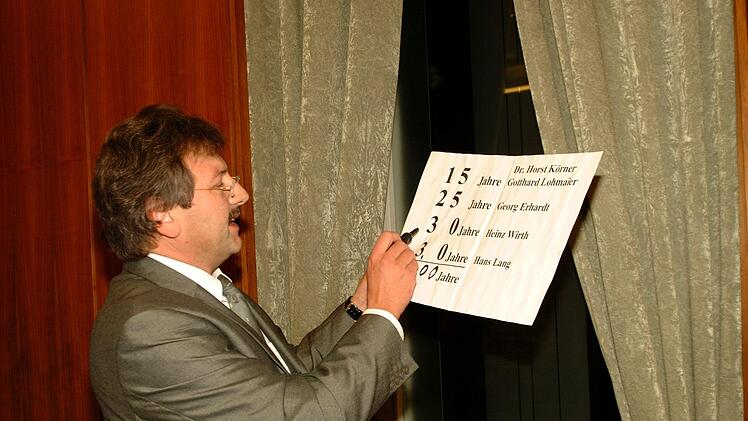 Dr. Horst Körner
15 Jahre Gotthard Lohmaier
25 Jahre Georg Erhardt
30 Jahre Heinz Wirth
30 Jahre Hans Lang
00 Jahre